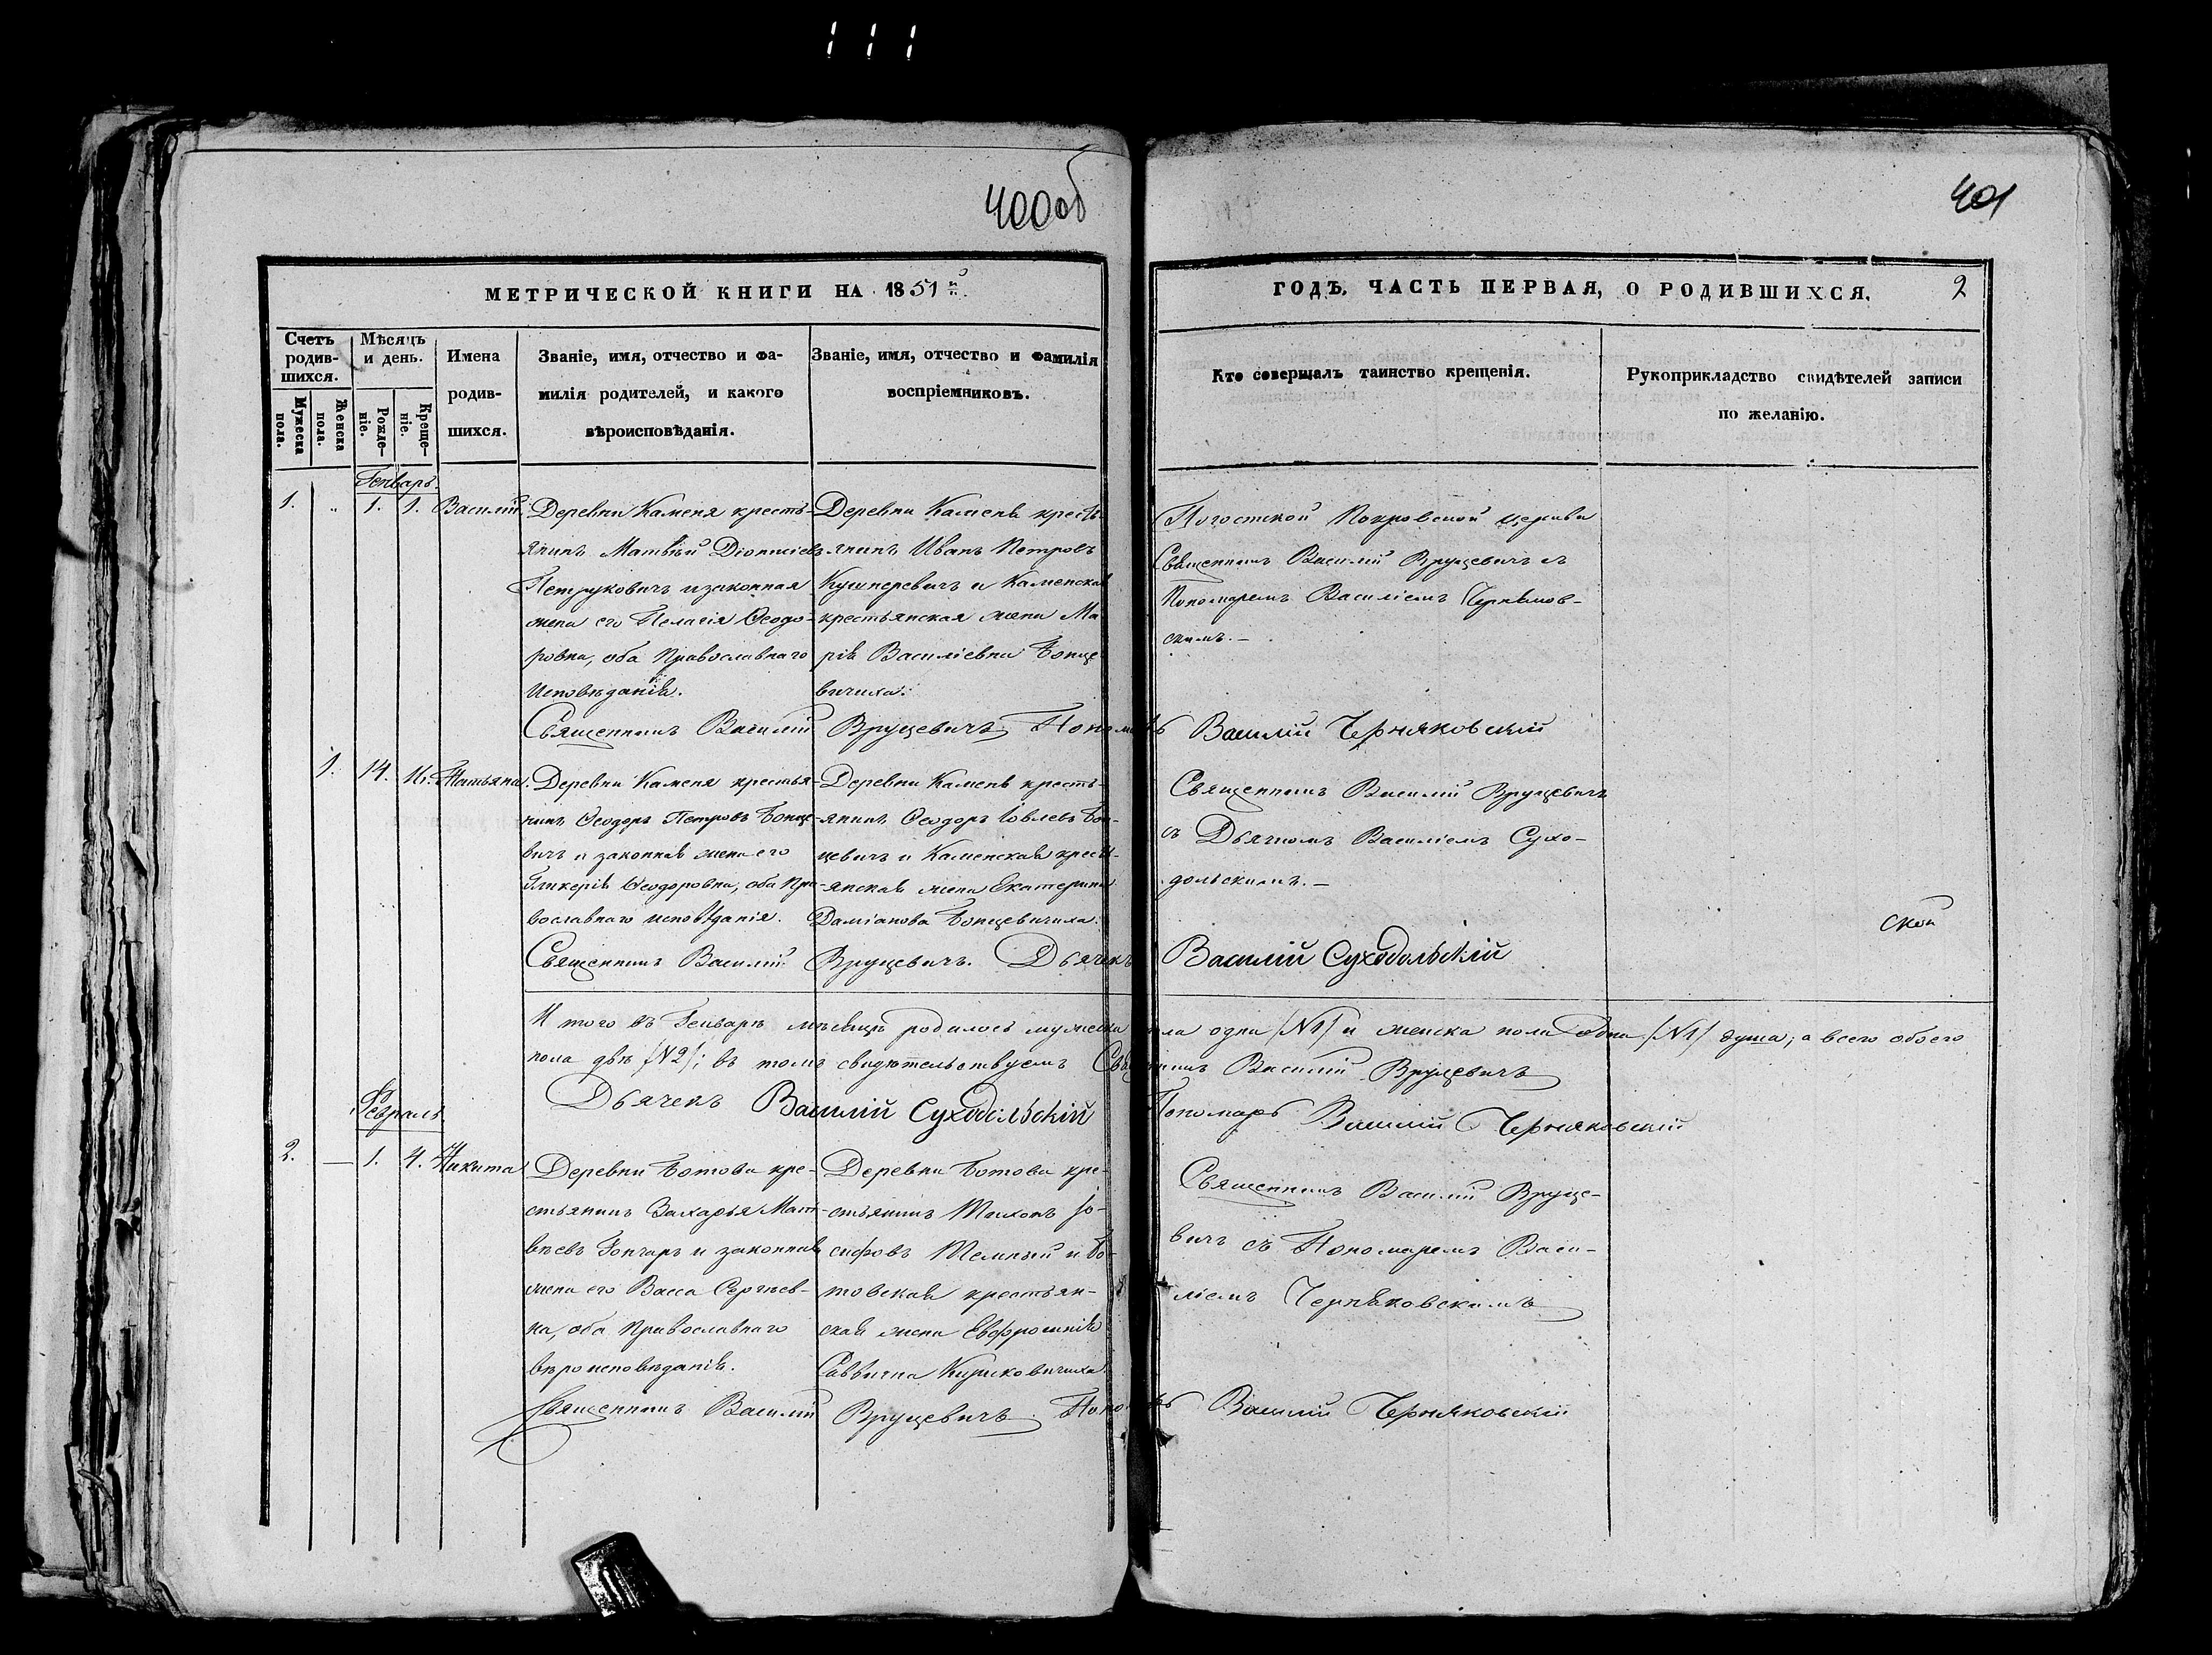 400об
401
МЕТРИЧЕСКОЙ КНИГИ НА 1851й
ГОДЪ. ЧАСТЬ ПЕРВАЯ, О РОДИВШИХСЯ. 2
Счетъ родив-шихся.
Мужеска пола.
Женска пола.
Мѣсяцъ и день.
Рожде-ніе.
Креще-ніе.
Имена родив-шихся.
Званіе, имя, отчество и фа-
милія родителей, и какого
вѣроисповѣданія.
Званіе, имя, отчество и фамилія
воспріемниковъ.
Кто совершалъ таинство крещенія.
Рукоприкладство свидѣтелей записи
по желанію.
Генварь.
1. „ 1. 1. Василій.
Деревни Каменя кресть-
янинъ Матвѣй Діонисіевъ
Петрукович и законная
жена его Пелагія Ѳеодо-
ровна, оба Православнаго
Исповѣданія.
Деревни Каменя кресть-
янинъ Иванъ Петровъ
Кушнеревичъ и Каменская
крестьянская жена Ма-
рія Василіевна Бонце-
вичиха.
Погостской Покровской церкви
Священникъ Василій Вруцевичъ съ
Пономаремъ Василіемъ Черняков-
скимъ.—
Священникъ Василій Вруцевичъ Пономарь Василій Черняковскій
1. 14. 16. Татьяна.
Деревни Каменя крестья-
нинъ Ѳеодоръ Петровъ Бонце-
вичъ и законная жена его
Гликерія Ѳеодоровна, оба Пра-
вославнаго исповѣданія.
Деревни Каменя кресть-
янинъ Ѳеодоръ Іовлевъ Бон-
цевичъ и Каменская кресть-
янская жена Екатерина
Даміанова Бонцевичиха.
Священникъ Василій Вруцевичъ
съ Дьячкомъ Василіемъ Сухо-
дольскимъ.—
ской
Священникъ Василій Вруцевичъ. Дьячекъ Василій Суходольскій
И того въ Генварѣ мѣсяцѣ родилось мужеска пола одна /№1/ и женска пола одна /№1/ душа; а всего обоего
пола двѣ /№2/; въ томъ свидѣтельствуемъ Священникъ Василій Вруцевичъ
Дьячекъ Василій Суходольскій Пономарь Василій Черняковскій
Февраль.
2. — 1. 4. Никита
Деревни Ботова кре-
стьянинъ Захарья Мат-
вѣевъ Гончаръ и законная
жена его Васса Сергѣев-
на, оба Православнаго
вѣроисповѣданія.
Деревни Ботова кре-
стьянинъ Тихонъ Іо-
сифовъ Темный и Бо-
товская крестьян-
ская жена Евфросинія
Саввична Кириковичиха.
Священникъ Василій Вруце-
вичъ съ Пономаремъ Васи-
ліемъ Черняковскимъ
Священникъ Василій Вруцевичъ Пономарь Василій Черняковскій